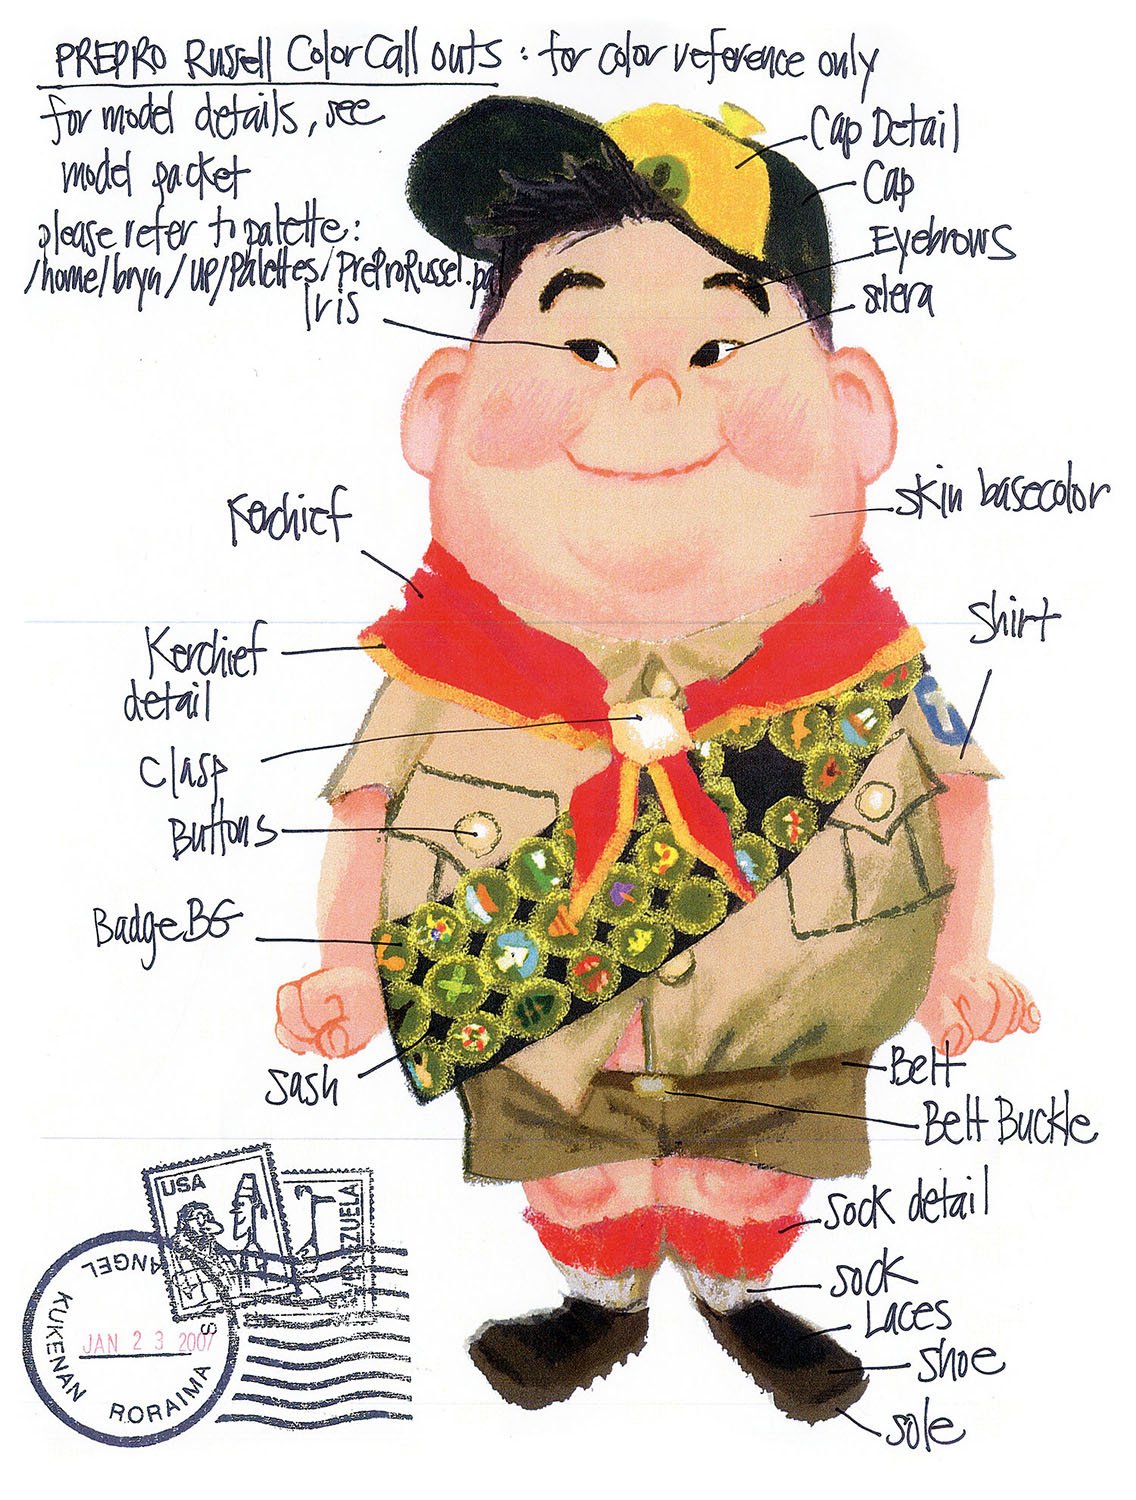 PREPRO Russell Color Call outs : for color reference only
for model details, see
model packet
please refer to palette:
/home/bryn/UP/Palettes/PreProRussel.pal
Iris
Cap Detail
Cap
Eyebrows
sclera
Kerchief
skin basecolor
Kerchief
detail
Shirt
clasp
Buttons
BadgeBG
sash
Belt
Belt Buckle
sock detail
sock
Laces
shoe
sole
USA
VENEZUELA
ANGEL
KUKENAN
RORAIMA
JAN 23 2007